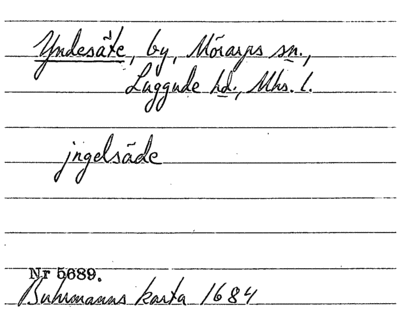 Yndesäte, by, Mörarps sn.,
Luggude hd., Mhs. l.
jngelsäde
Nr 5689.
Buhrmanns karta 1684